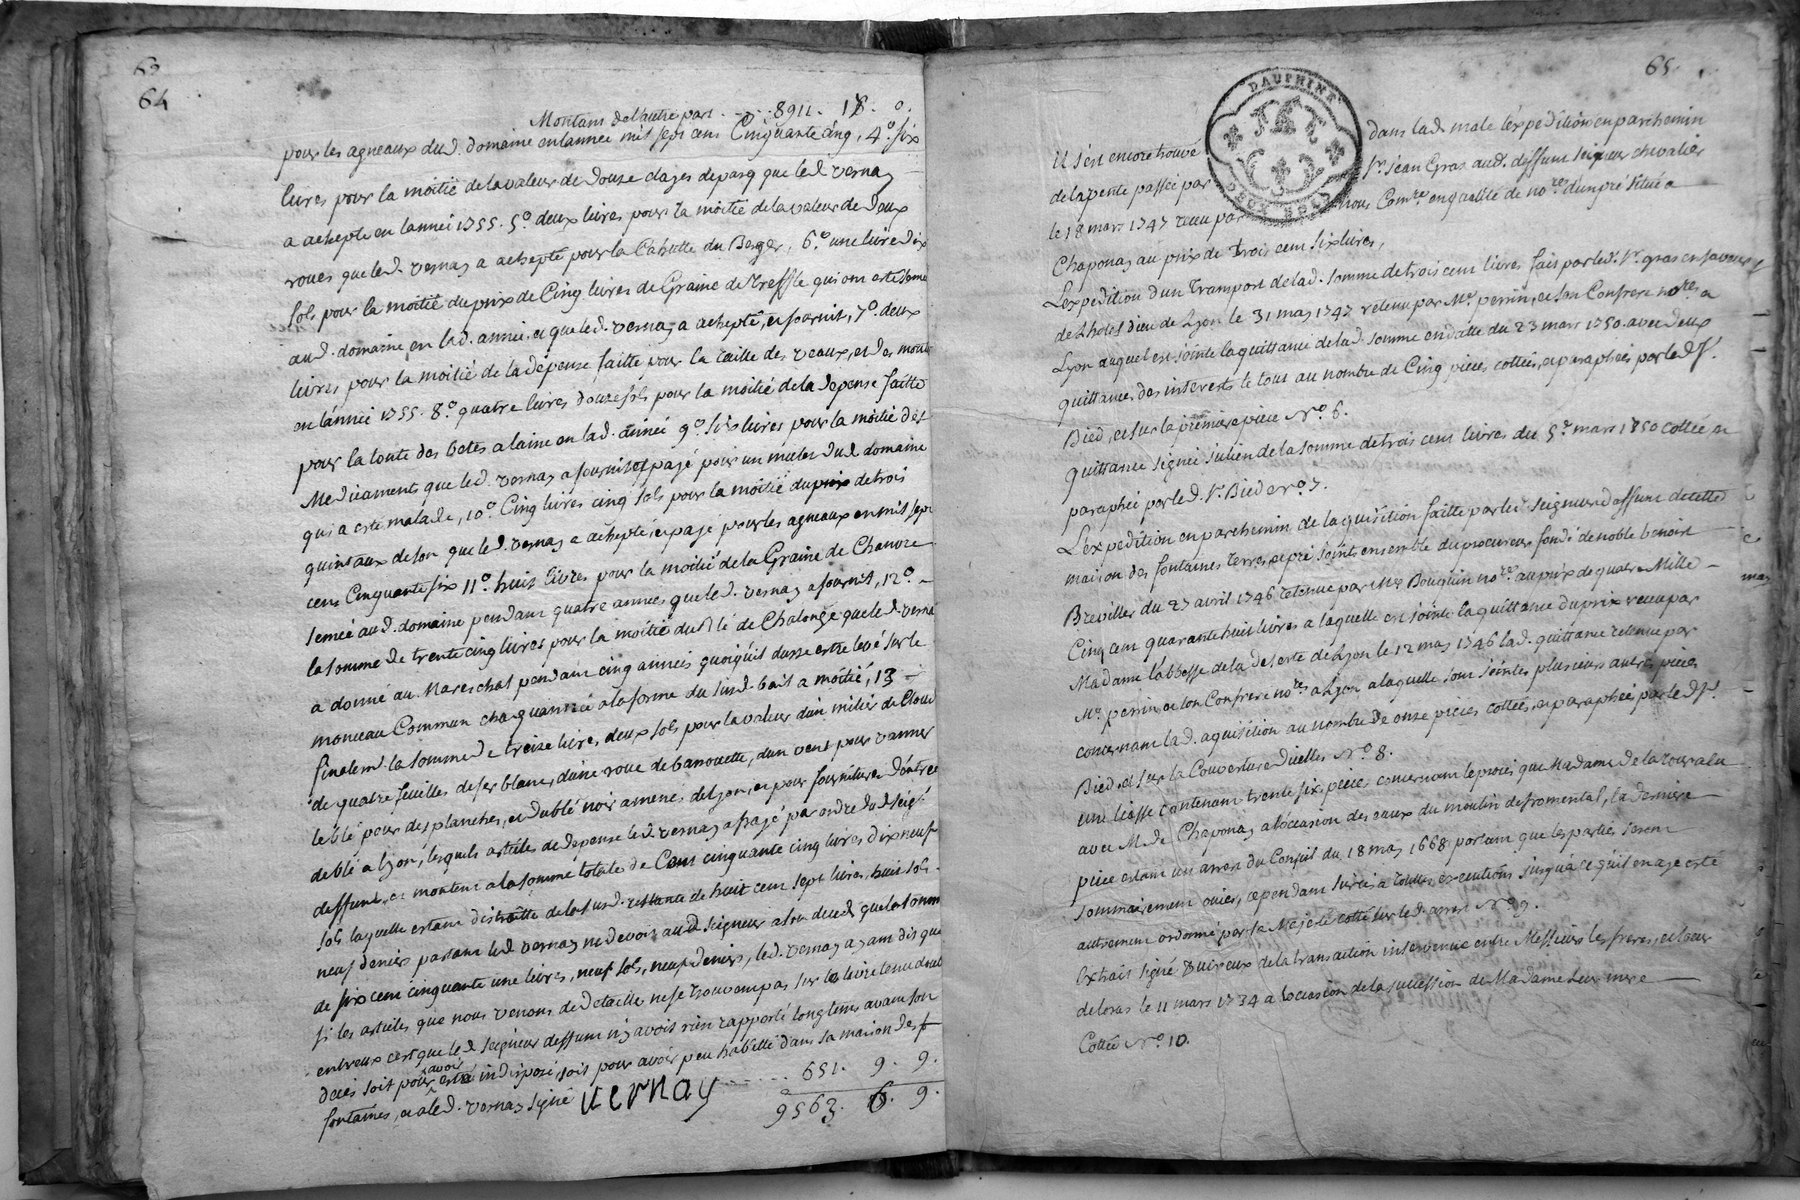 63
64
Montant de l'autre part . . . . 8911. 18. 0.
pour les agneaux dud. domaine en lannee mil sept cens Cinquante cinq, 4.º six
livres pour la moitié de la valeur de douze clayes de parq que led. vernay
a achepté en lannéé 1755. 5.º deux livres pour la moitié de la valeur de deux
roues que led. vernay a achepté pour la Cabutte du Berger, 6.º une livre dix
sols pour la moitié du prix de Cinq livres de Graine de Treffle qui ont esté semé
aud. domaine en lad. année, et que led. vernay a achepté, et fournit, 7.º deux
livres pour la moitié de la dépense faitte pour la taille des veaux, et des mouton
en lannéé 1755. 8.º quatre livres douze sols pour la moitié de la depense faitte
pour la tonte des betes a laine en lad. annéé 9.º six livres pour la moitié des
Medicaments que led. vernay a fournit et payé pour un mulet dud. domaine
qui a esté malade, 10.º Cinq livres cinq sols pour la moitié du prix de trois
quintaux de son que led. vernay a achepté et payé pour les agneaux en mil sept
cens Cinquante six 11.º huit livres pour la moitié de la Graine de Chanvre
semeé aud. domaine pendant quatre années que led. vernay a fournit, 12.º
la somme de trente cinq livres pour la moitié du Blé de Chalonge que led. verna
a donné au Mareschal pendant cinq années quoiqu'il dusse estre levé sur le
monceau Commun chaque année a la forme du susd. bail a moitié, 13
finalem.t la somme de treize livres deux sols pour la valeur d'un milier de Cloud
de quatre feuilles de fer blanc, d'une roue de barouette, d'un vent pour vanner
le blé pour des planches, et du blé noir amené de Lyon, et pour fourniture d'entrée
de blé a Lyon, lesquels articles de depense led. vernay a payé par ordre dud. seig.r
deffunt, et montent a la somme totale de Cent cinquante cinq livres dix neuf
sols laquelle estant distraitte de la susd. restante de huit cent sept livres huit sols
neuf deniers partant led. vernay ne devoit aud. seigneur a son deced que la somme
de six cent cinquante une livres, neuf sols, neuf deniers, led. vernay ayant dit que
si les articles que nous venons de detaille ne se trouvent pas sur le livre tenu double
entreux cest que led. seigneur deffunt n'y avoit rien rapporté longtems avant son
deces soit pour avoir esté indisposé, soit pour avoir peu habitté dans sa maison des
fontaines, et a led. vernay signé vernay . . . . . 651. 9. 9.
9563. 6. 9.
65.
DAUPHINE
DEUX SOLS
il s'est encore trouvé dans lad. male l'expedition en parchemin
de la vente passée par S.r Jean Gras aud. deffunt seigneur chevalier
le 18 mars 1747 receu par nous Com.re en qualité de no.re d'un pré situé a
Chaponay au prix de trois cent six livres,
L'expedition d'un transport de lad. somme de trois cent livres fait par led. S.r gras en faveur
de Lhotel dieu de Lyon le 31 may 1747 retenu par M.e perrin, et son Confrere no.res a
Lyon auquel est jointe la quittance de lad. somme en datte du 23 mars 1750. avec deux
quittances des interests le tout au nombre de Cinq pieces cottées, et paraphées par led. S.r
Bied, et sur la premiere piece N.º 6.
Quittance signée Julien de la somme de trois cent livres du 5.e mars 1750 cottée et
paraphée par led. S.r Bied N.º 7.
L'expedition en parchemin de laquisition faitte par led. seigneur deffunt de cette
maison des fontaines terres et pré joint ensemble du procureur fondé de noble benoist
Brevilles du 27 avril 1746 retenue par M.e Bourguin no.re au prix de quatre Mille
Cinq cent quarante huit livres a laquelle est jointe la quittance du prix receu par
Madame L'abbesse de la deserte de Lyon le 12 may 1746 lad. quittance retenue par
M.e perrin et son Confrere no.res a Lyon a laquelle sont jointes plusieurs autres pieces
concernant lad. aquisition au nombre de onze pieces cottées, et paraphées par led. S.r
Bied, et sur la Couverture d'icelles N.º 8.
une liasse Contenant trente six pieces concernant le procès que Madame de la tour a eu
avec M. de Chaponay a l'occasion des eaux du moulin de fromental, la derniere
piece estant un arrest du Conseil du 18 may 1668 portant que les parties seront
sommairement ouies, cependant sursis a toutes executions jusqu'a ce quil en aye esté
autrement ordonné par sa Majesté cotté sur led. arrest N.º 9.
Extrait signé Duireux de la transaction intervenue entre Messieurs les freres, et sœur
de loras le 11 mars 1734 a loccasion de la succession de Madame leur mere
Cottée N.º 10.